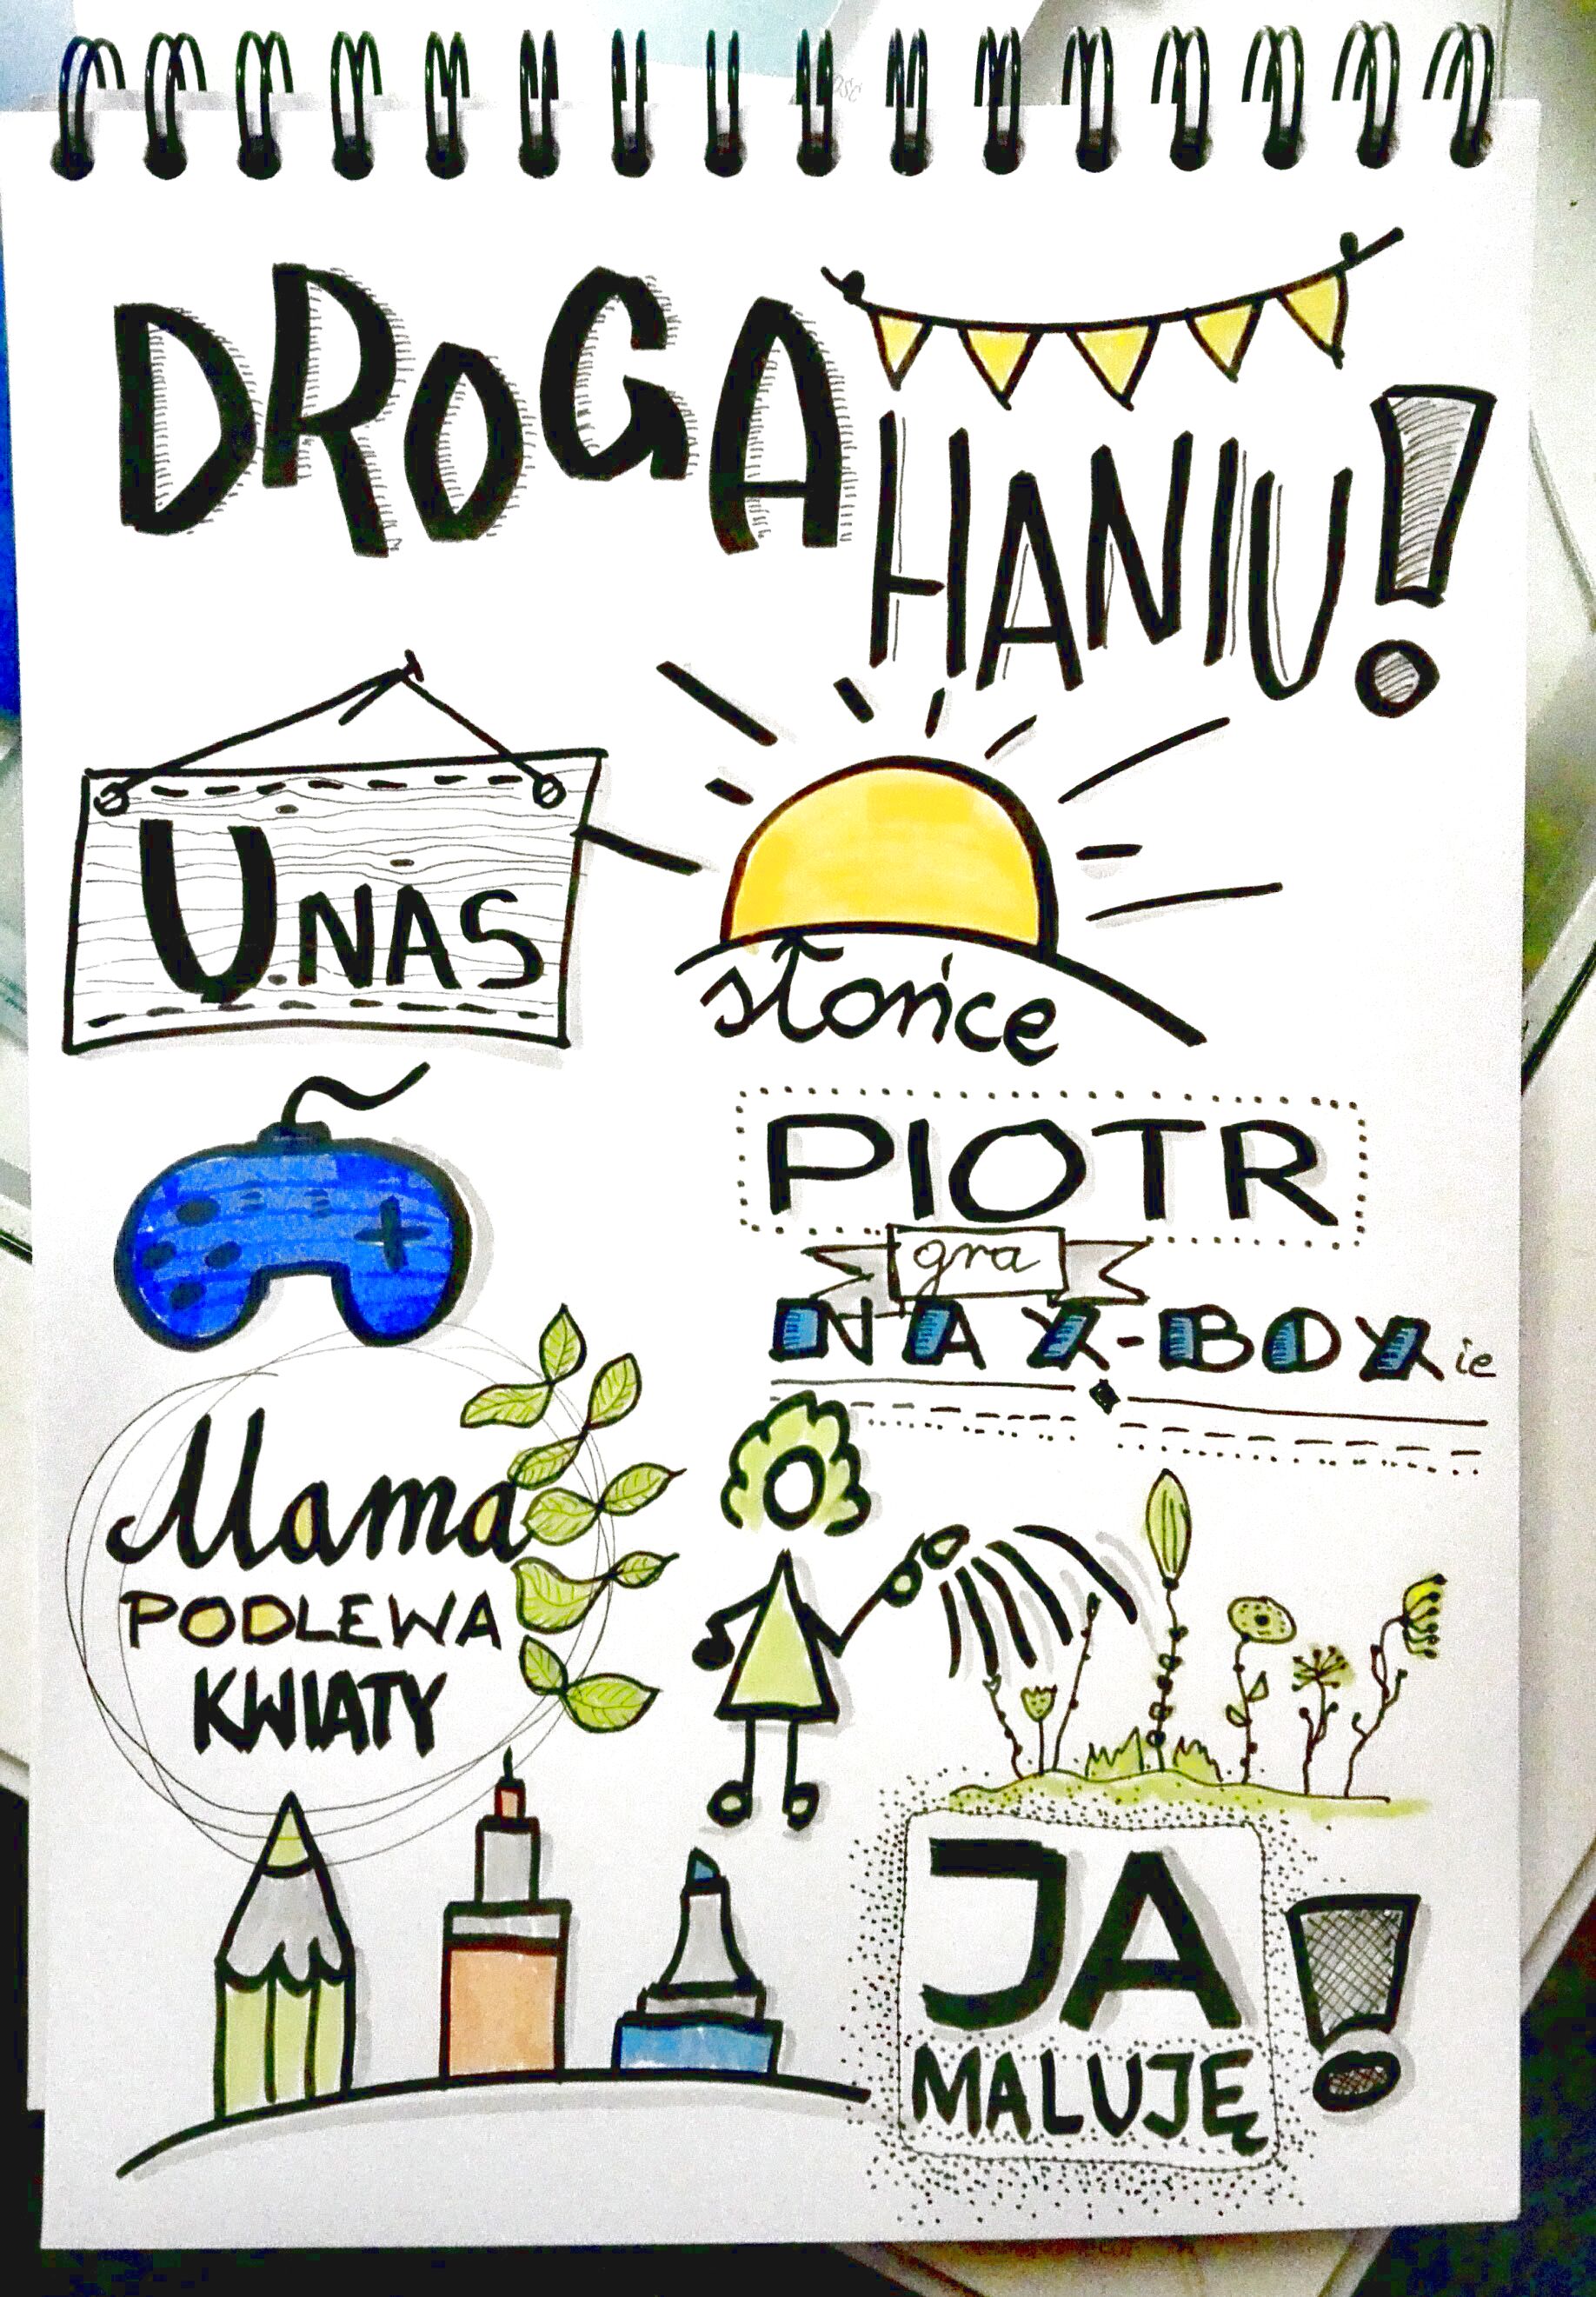 DROGA
HANIU!
U NAS
słońce
PIOTR
gra
NA X-BOXie
Mama
PODLEWA
KWIATY
JA
MALUJĘ!